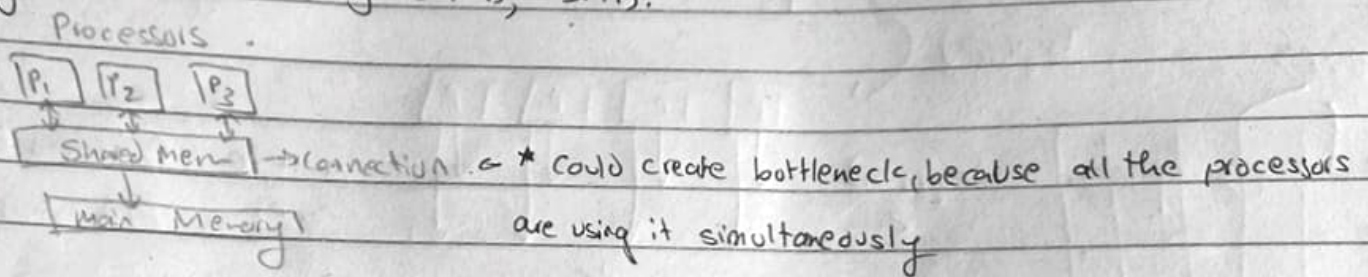 Processors .
P1 P2 P3
Shared mem → connection ← * Could create bottleneck, because all the processors
Main Memory are using it simultaneously